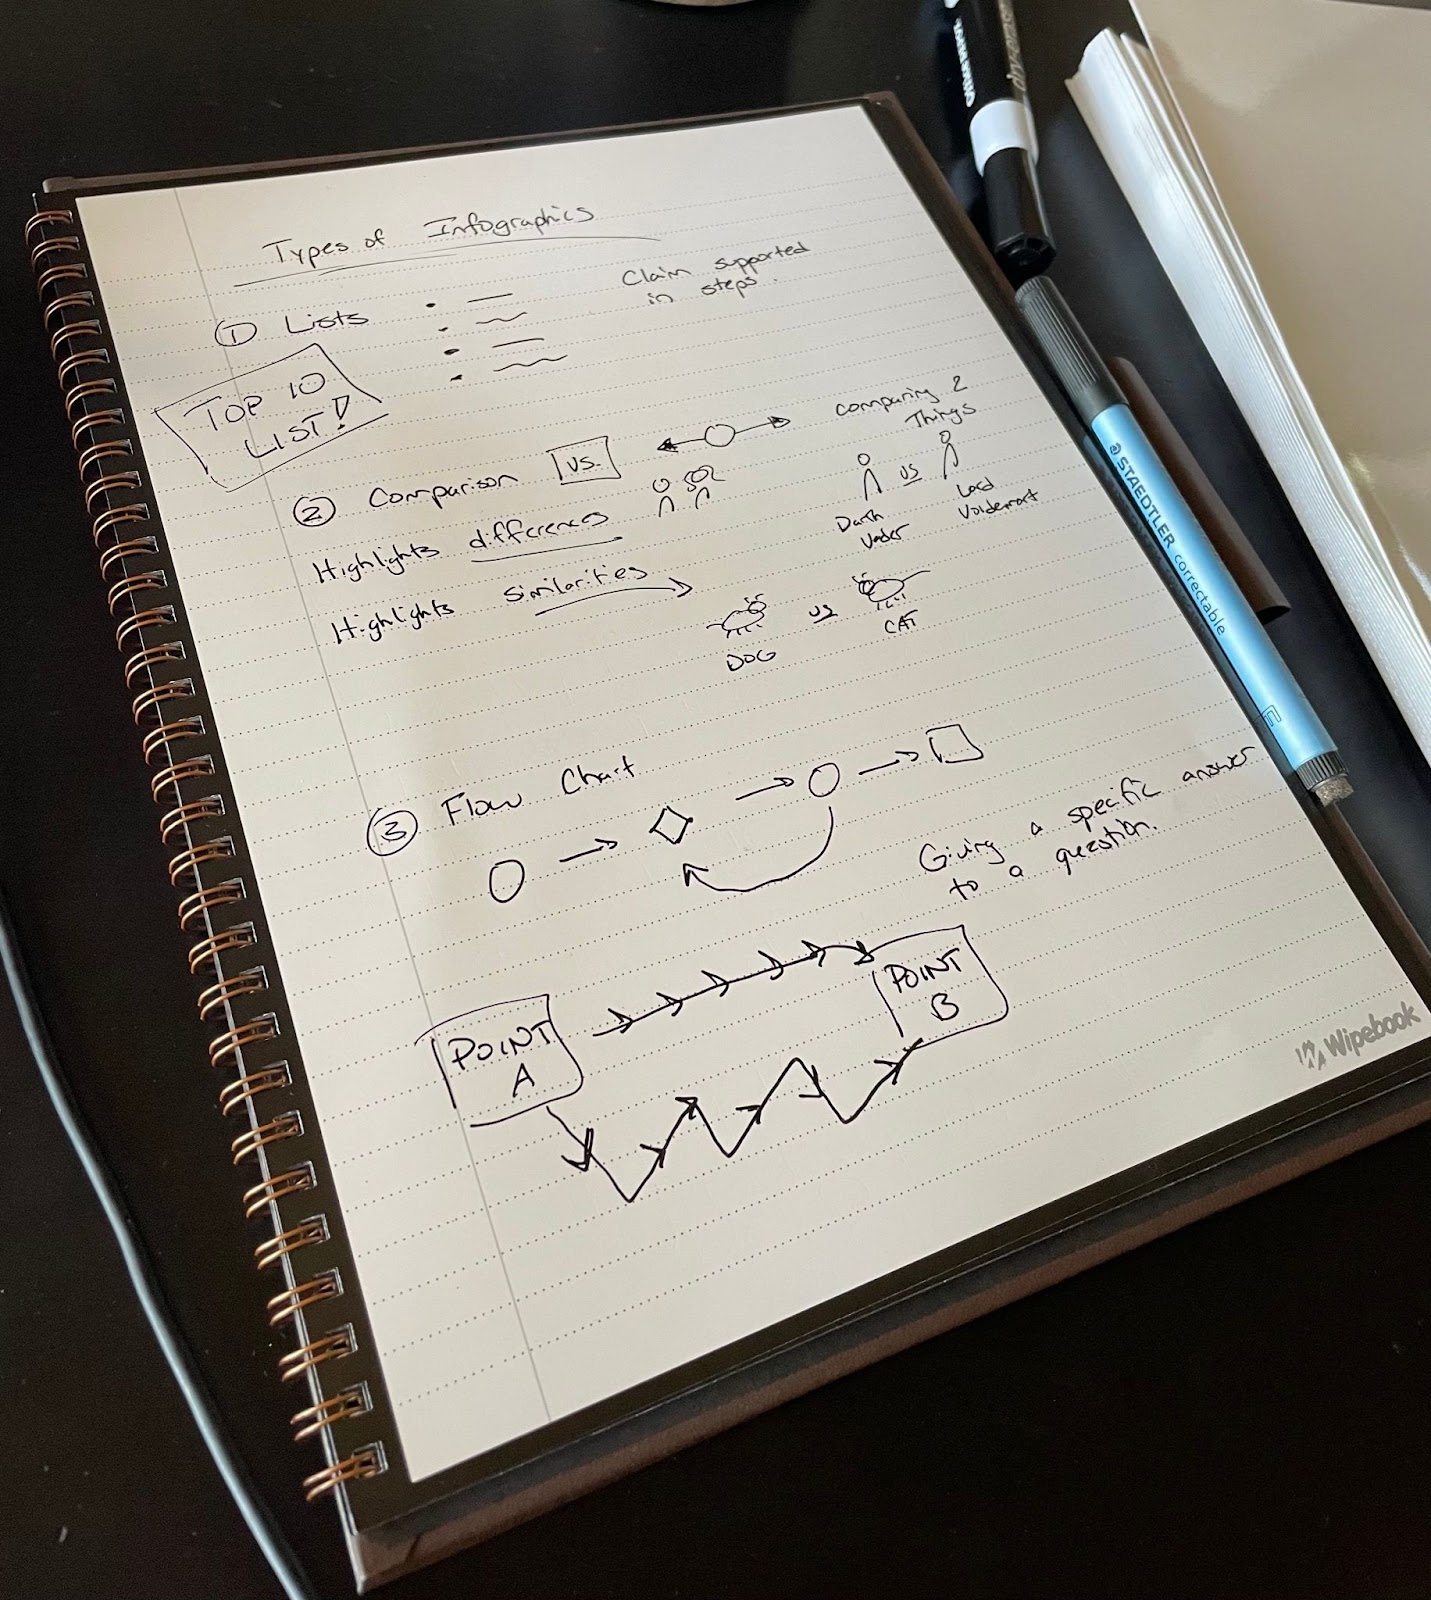 Types of Infographics
① Lists
Claim supported
in steps.
TOP 10
LIST!
② Comparison
VS.
comparing 2
Things
Highlights differences
VS
Darth
Vader
Lord
Voldemort
Highlights similarities
VS
DOG
CAT
③ Flow Chart
Giving a specific answer
to a question.
POINT
A
POINT
B
Wipebook
STAEDTLER correctable